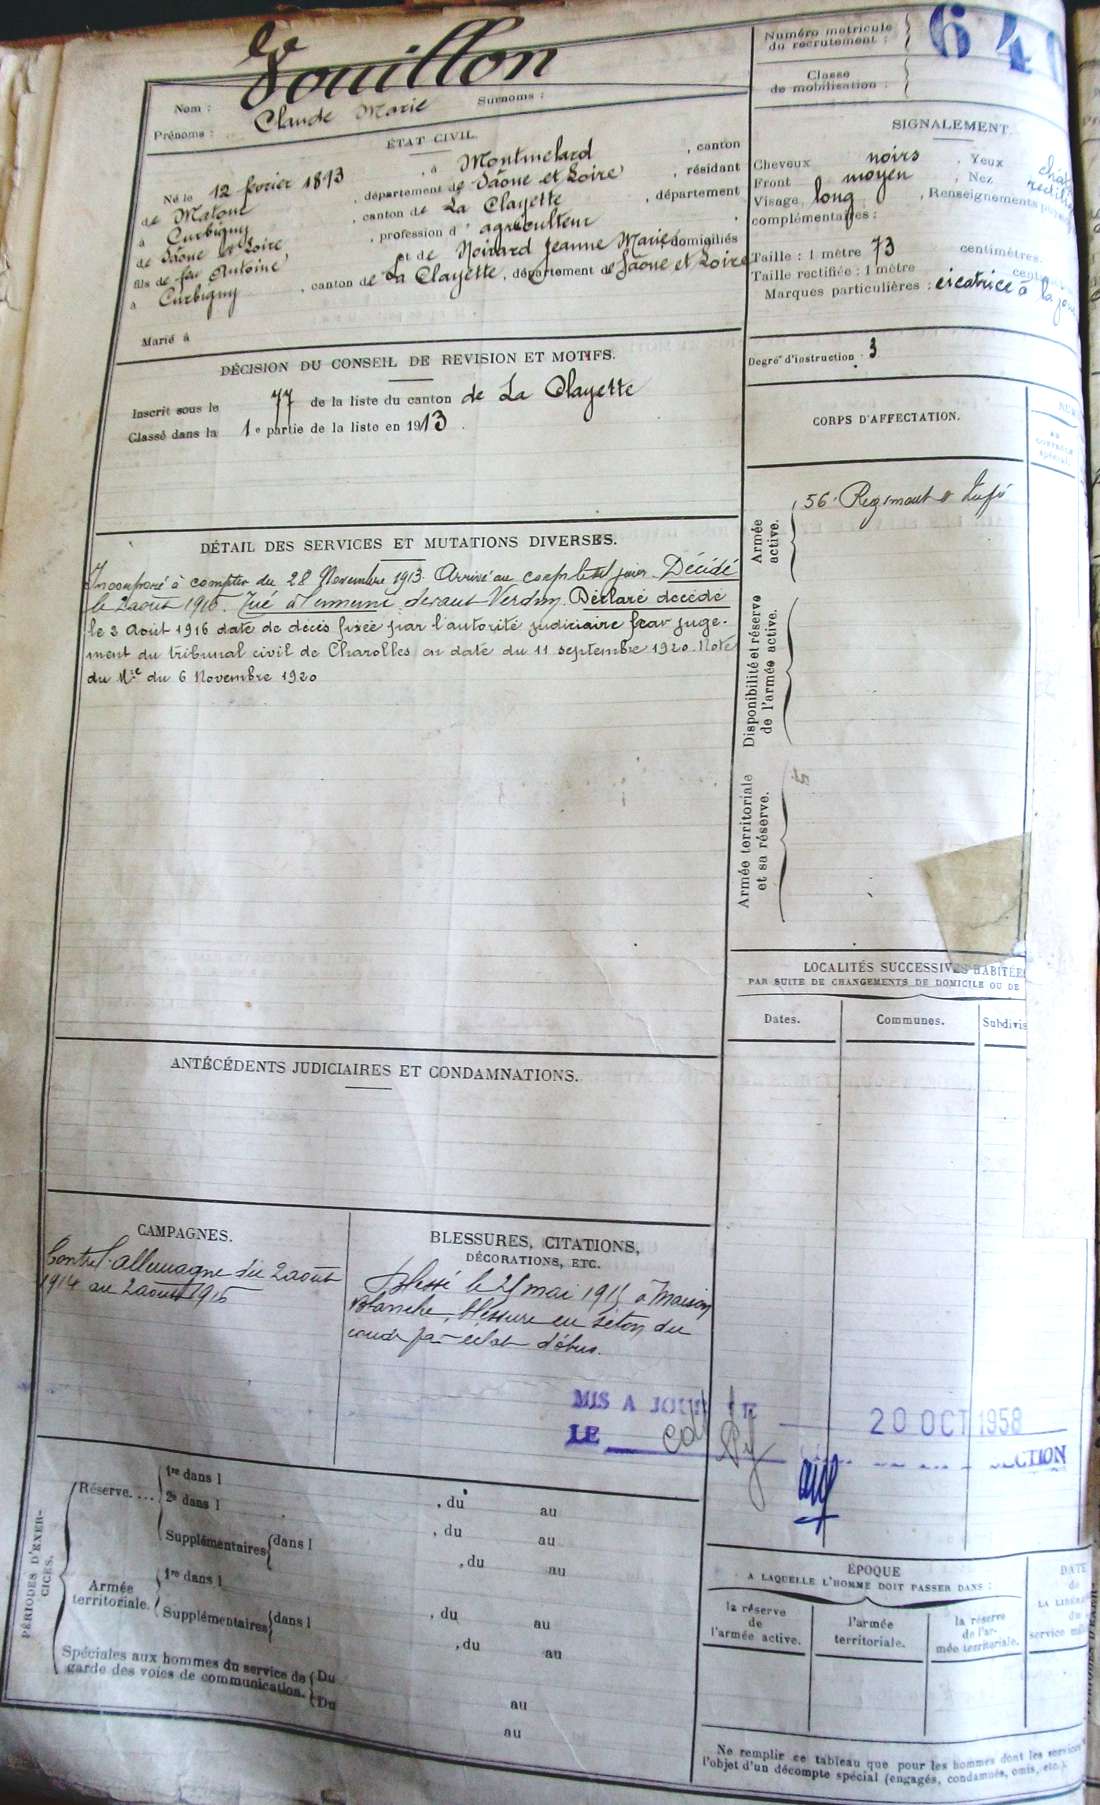 Nom : Vouillon
Prénoms : Claude Marie Surnoms :
Numéro matricule du recrutement : 640
Classe de mobilisation :
ÉTAT CIVIL.
Né le 12 février 1893, à Montmelard, canton
de Matour, département de Saône et Loire, résidant
à Curbigny, canton de La Clayette, département
de Saône et Loire, profession d' agriculteur
fils de feu Antoine et de Noirard Jeanne Marie domiciliés
à Curbigny, canton de La Clayette, département de Saône et Loire
Marié à
SIGNALEMENT.
Cheveux noirs. Yeux
Front moyen, Nez
Visage long, Renseignements
complémentaires :
Taille : 1 mètre 73 centimètres.
Taille rectifiée : 1 mètre
Marques particulières : cicatrice à la
Degré d'instruction : 3
DÉCISION DU CONSEIL DE REVISION ET MOTIFS.
Inscrit sous le 77 de la liste du canton de La Clayette
Classé dans la 1e partie de la liste en 1913.
CORPS D'AFFECTATION.
Armée active.
56e Régiment d' Infie
Disponibilité et réserve de l'armée active.
Armée territoriale et sa réserve.
DÉTAIL DES SERVICES ET MUTATIONS DIVERSES.
Incorporé à compter du 28 Novembre 1913. Arrivé au corps le dit jour. Décédé
le 2 août 1916. Tué à l'ennemi devant Verdun. Déclaré décédé
le 2 Août 1916 date de décès fixée par l'autorité judiciaire par juge-
ment du tribunal civil de Charolles en date du 11 septembre 1920. Note
du Mre du 6 Novembre 1920
LOCALITÉS SUCCESSIVES HABITÉES
PAR SUITE DE CHANGEMENTS DE DOMICILE OU DE
Dates. Communes. Subdivis
ANTÉCÉDENTS JUDICIAIRES ET CONDAMNATIONS.
CAMPAGNES.
Contre l'allemagne du 2 août
1914 au 2 août 1916
BLESSURES, CITATIONS,
DÉCORATIONS, ETC.
Blessé le 25 mai 1915 à Maison
Blanche, blessure en séton du
coude par éclat d'obus.
MIS A JOUR
LE
20 OCT 1958
SECTION
PÉRIODES D'EXERCICES.
Réserve....
1re dans l , du au
2e dans l , du au
Supplémentaires dans l , du au
Armée territoriale.
1re dans l , du au
Supplémentaires dans l , du au
Spéciales aux hommes du service de
garde des voies de communication.
Du au
Du au
ÉPOQUE
A LAQUELLE L'HOMME DOIT PASSER DANS :
la réserve de l'armée active.
l'armée territoriale.
la réserve de l'armée territoriale.
DATE
de
LA LIBÉ
du
service
Ne remplir ce tableau que pour les hommes dont les services
l'objet d'un décompte spécial (engagés, condamnés, omis, etc.).